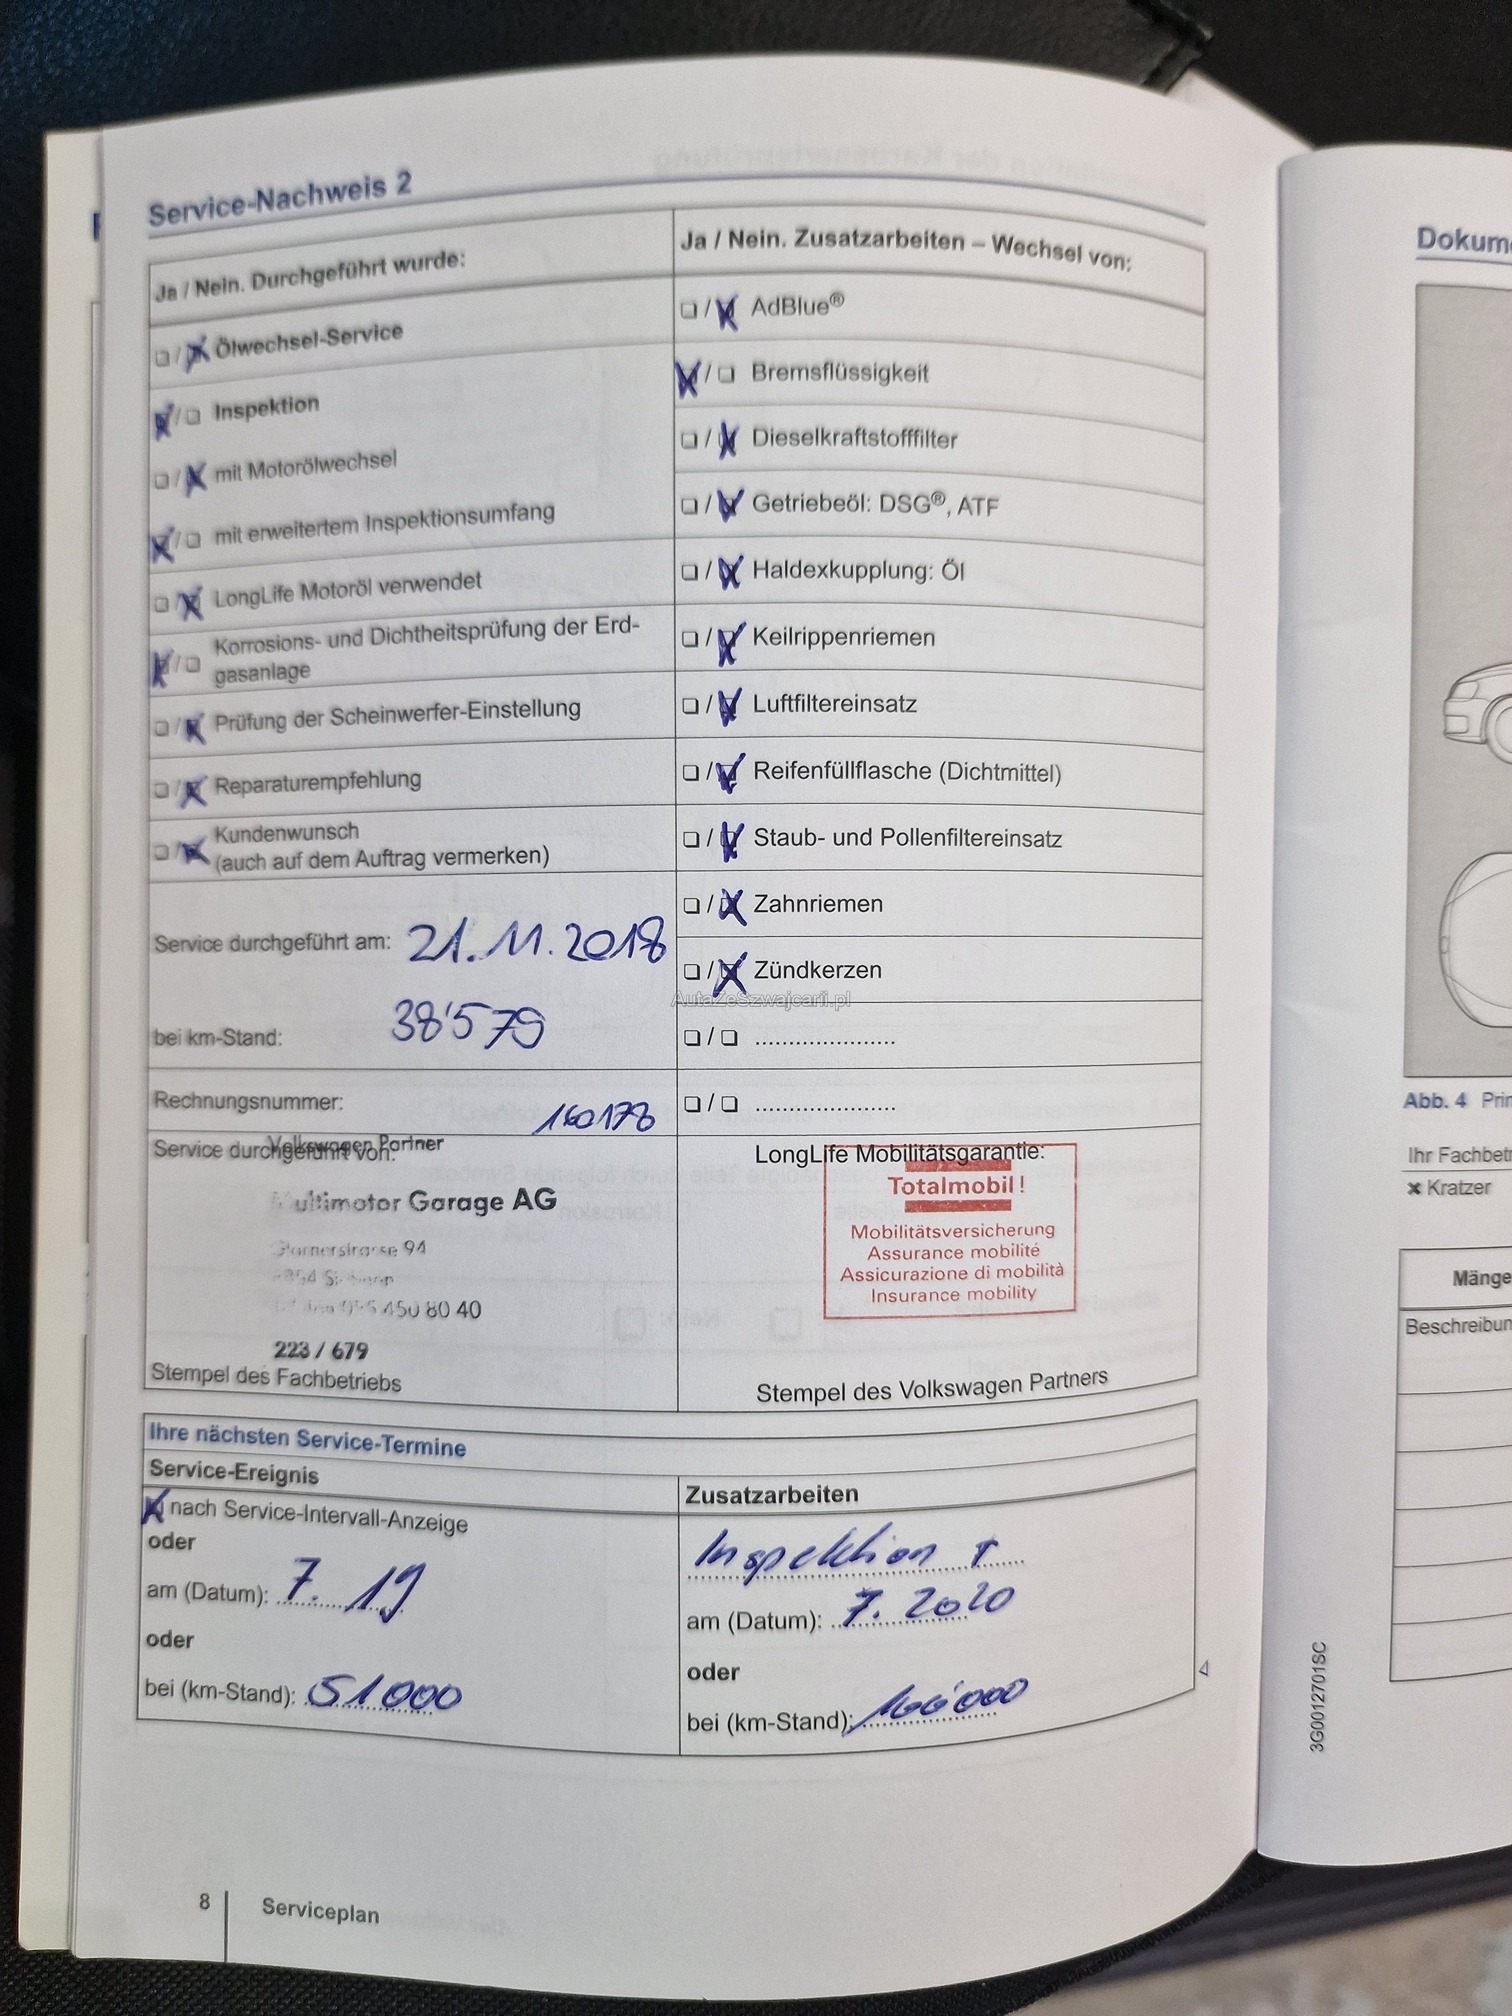 Service-Nachweis 2
Ja / Nein. Durchgeführt wurde:
❏ / ❏ Ölwechsel-Service
❏ / ❏ Inspektion
❏ / ❏ mit Motorölwechsel
❏ / ❏ mit erweitertem Inspektionsumfang
❏ / ❏ LongLife Motoröl verwendet
❏ / ❏ Korrosions- und Dichtheitsprüfung der Erd-
gasanlage
❏ / ❏ Prüfung der Scheinwerfer-Einstellung
❏ / ❏ Reparaturempfehlung
❏ / ❏ Kundenwunsch
(auch auf dem Auftrag vermerken)
Service durchgeführt am: 21.11.2018
bei km-Stand: 38'579
Rechnungsnummer: 160178
Service durchgeführt von:
Volkswagen Partner
Multimotor Garage AG
Glarnerstrasse 94
450 80 40
223 / 679
Stempel des Fachbetriebs
Ja / Nein. Zusatzarbeiten – Wechsel von:
❏ / ❏ AdBlue®
❏ / ❏ Bremsflüssigkeit
❏ / ❏ Dieselkraftstofffilter
❏ / ❏ Getriebeöl: DSG®, ATF
❏ / ❏ Haldexkupplung: Öl
❏ / ❏ Keilrippenriemen
❏ / ❏ Luftfiltereinsatz
❏ / ❏ Reifenfüllflasche (Dichtmittel)
❏ / ❏ Staub- und Pollenfiltereinsatz
❏ / ❏ Zahnriemen
❏ / ❏ Zündkerzen
AutaZeSzwajcarii.pl
❏ / ❏ .....................
❏ / ❏ .....................
LongLife Mobilitätsgarantie:
Totalmobil!
Mobilitätsversicherung
Assurance mobilité
Assicurazione di mobilità
Insurance mobility
Stempel des Volkswagen Partners
Ihre nächsten Service-Termine
Service-Ereignis
❏ nach Service-Intervall-Anzeige
oder
am (Datum): 7. 19
oder
bei (km-Stand): 51000
Zusatzarbeiten
Inspektion +
am (Datum): 7. 2020
oder
bei (km-Stand): 100'000
8 Serviceplan
Dokum
Abb. 4 Prin
Ihr Fachbetr
✖ Kratzer
Mänge
Beschreibun
3G0012701SC